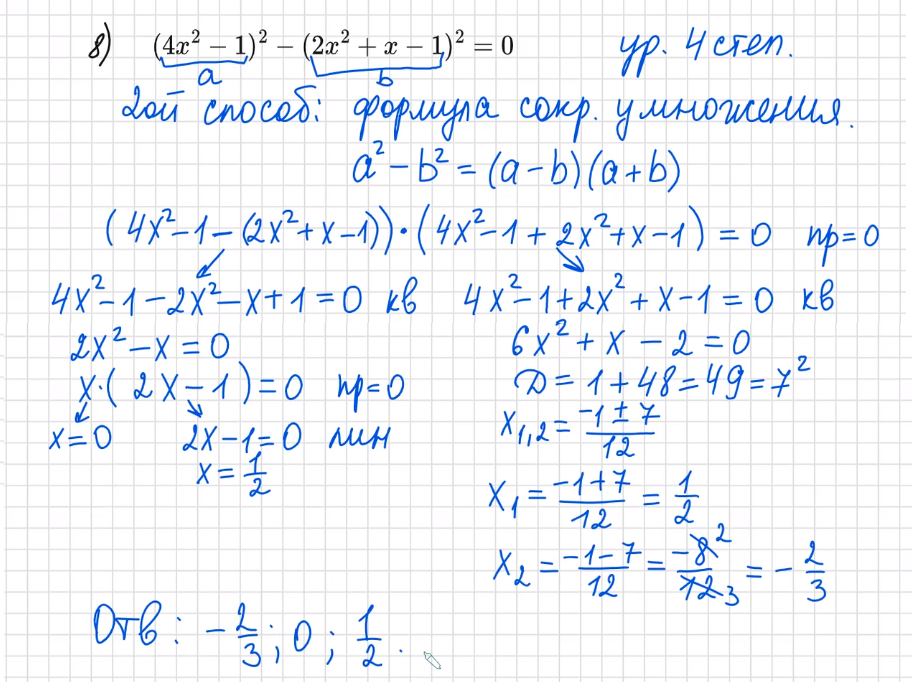 8) (4x² − 1)² − (2x² + x − 1)² = 0 ур. 4 степ.
a b
2ой способ: формула сокр. умножения.
a² − b² = (a − b)(a + b)
(4x² − 1 − (2x² + x − 1)) · (4x² − 1 + 2x² + x − 1) = 0 пр=0
4x² − 1 − 2x² − x + 1 = 0 кв
2x² − x = 0
x · (2x − 1) = 0 пр=0
x = 0 2x − 1 = 0 лин
x = 1/2
4x² − 1 + 2x² + x − 1 = 0 кв
6x² + x − 2 = 0
D = 1 + 48 = 49 = 7²
x₁,₂ = (−1 ± 7)/12
x₁ = (−1 + 7)/12 = 1/2
x₂ = (−1 − 7)/12 = −8 2/12 3 = −2/3
Отв: −2/3; 0; 1/2.